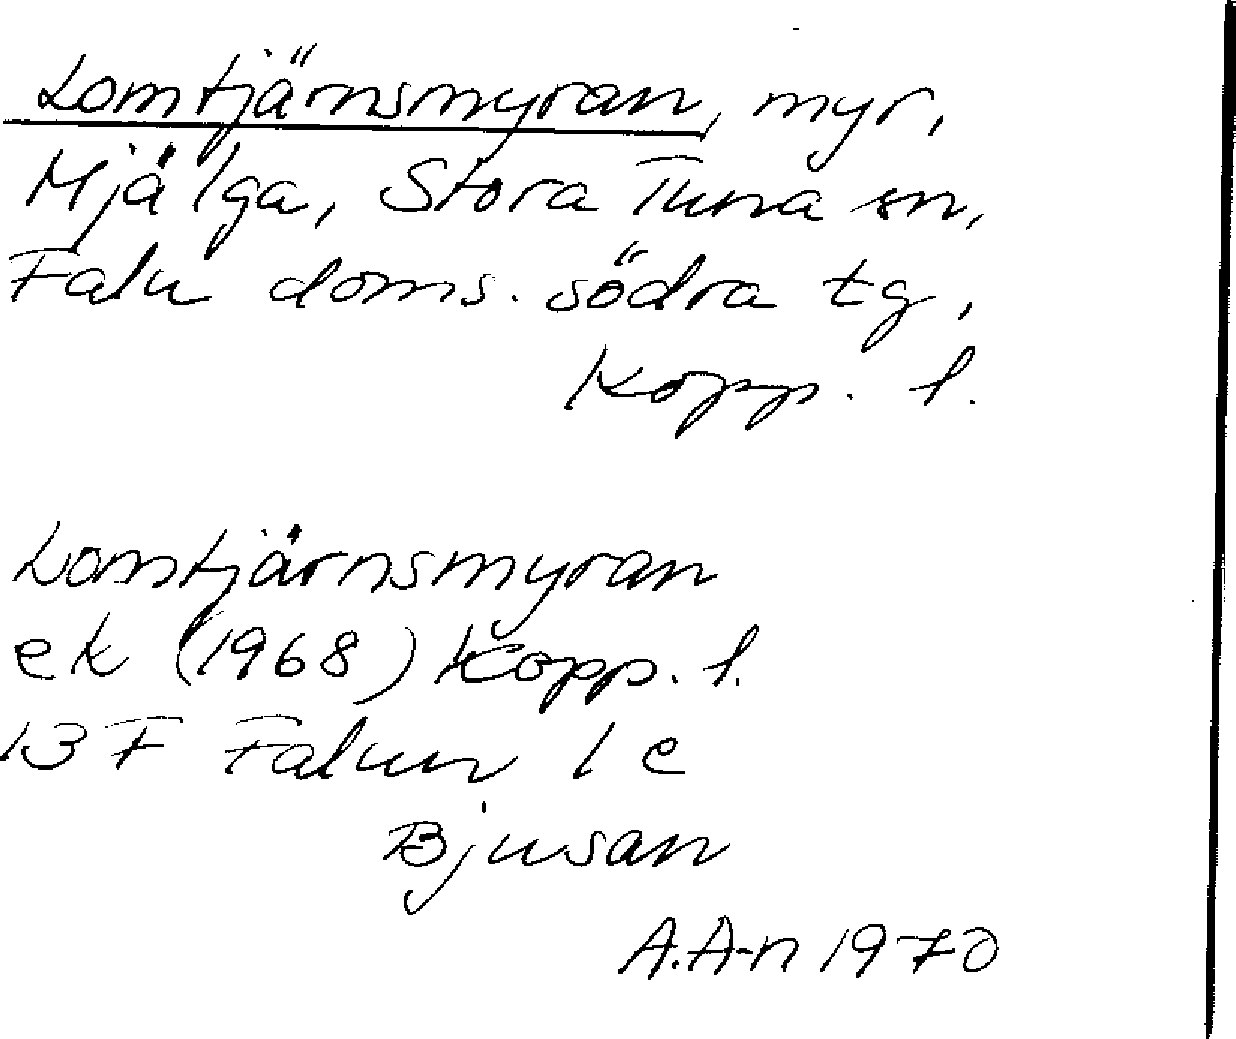 Lomtjärnsmyran, myr,
Mjälga, Stora Tuna sn,
Falu doms. södra tg,
Kopp. l.
Lomtjärnsmyran
ek (1968) Kopp. l.
13 F Falun 1 e
Bjusan
A.A-n 1970